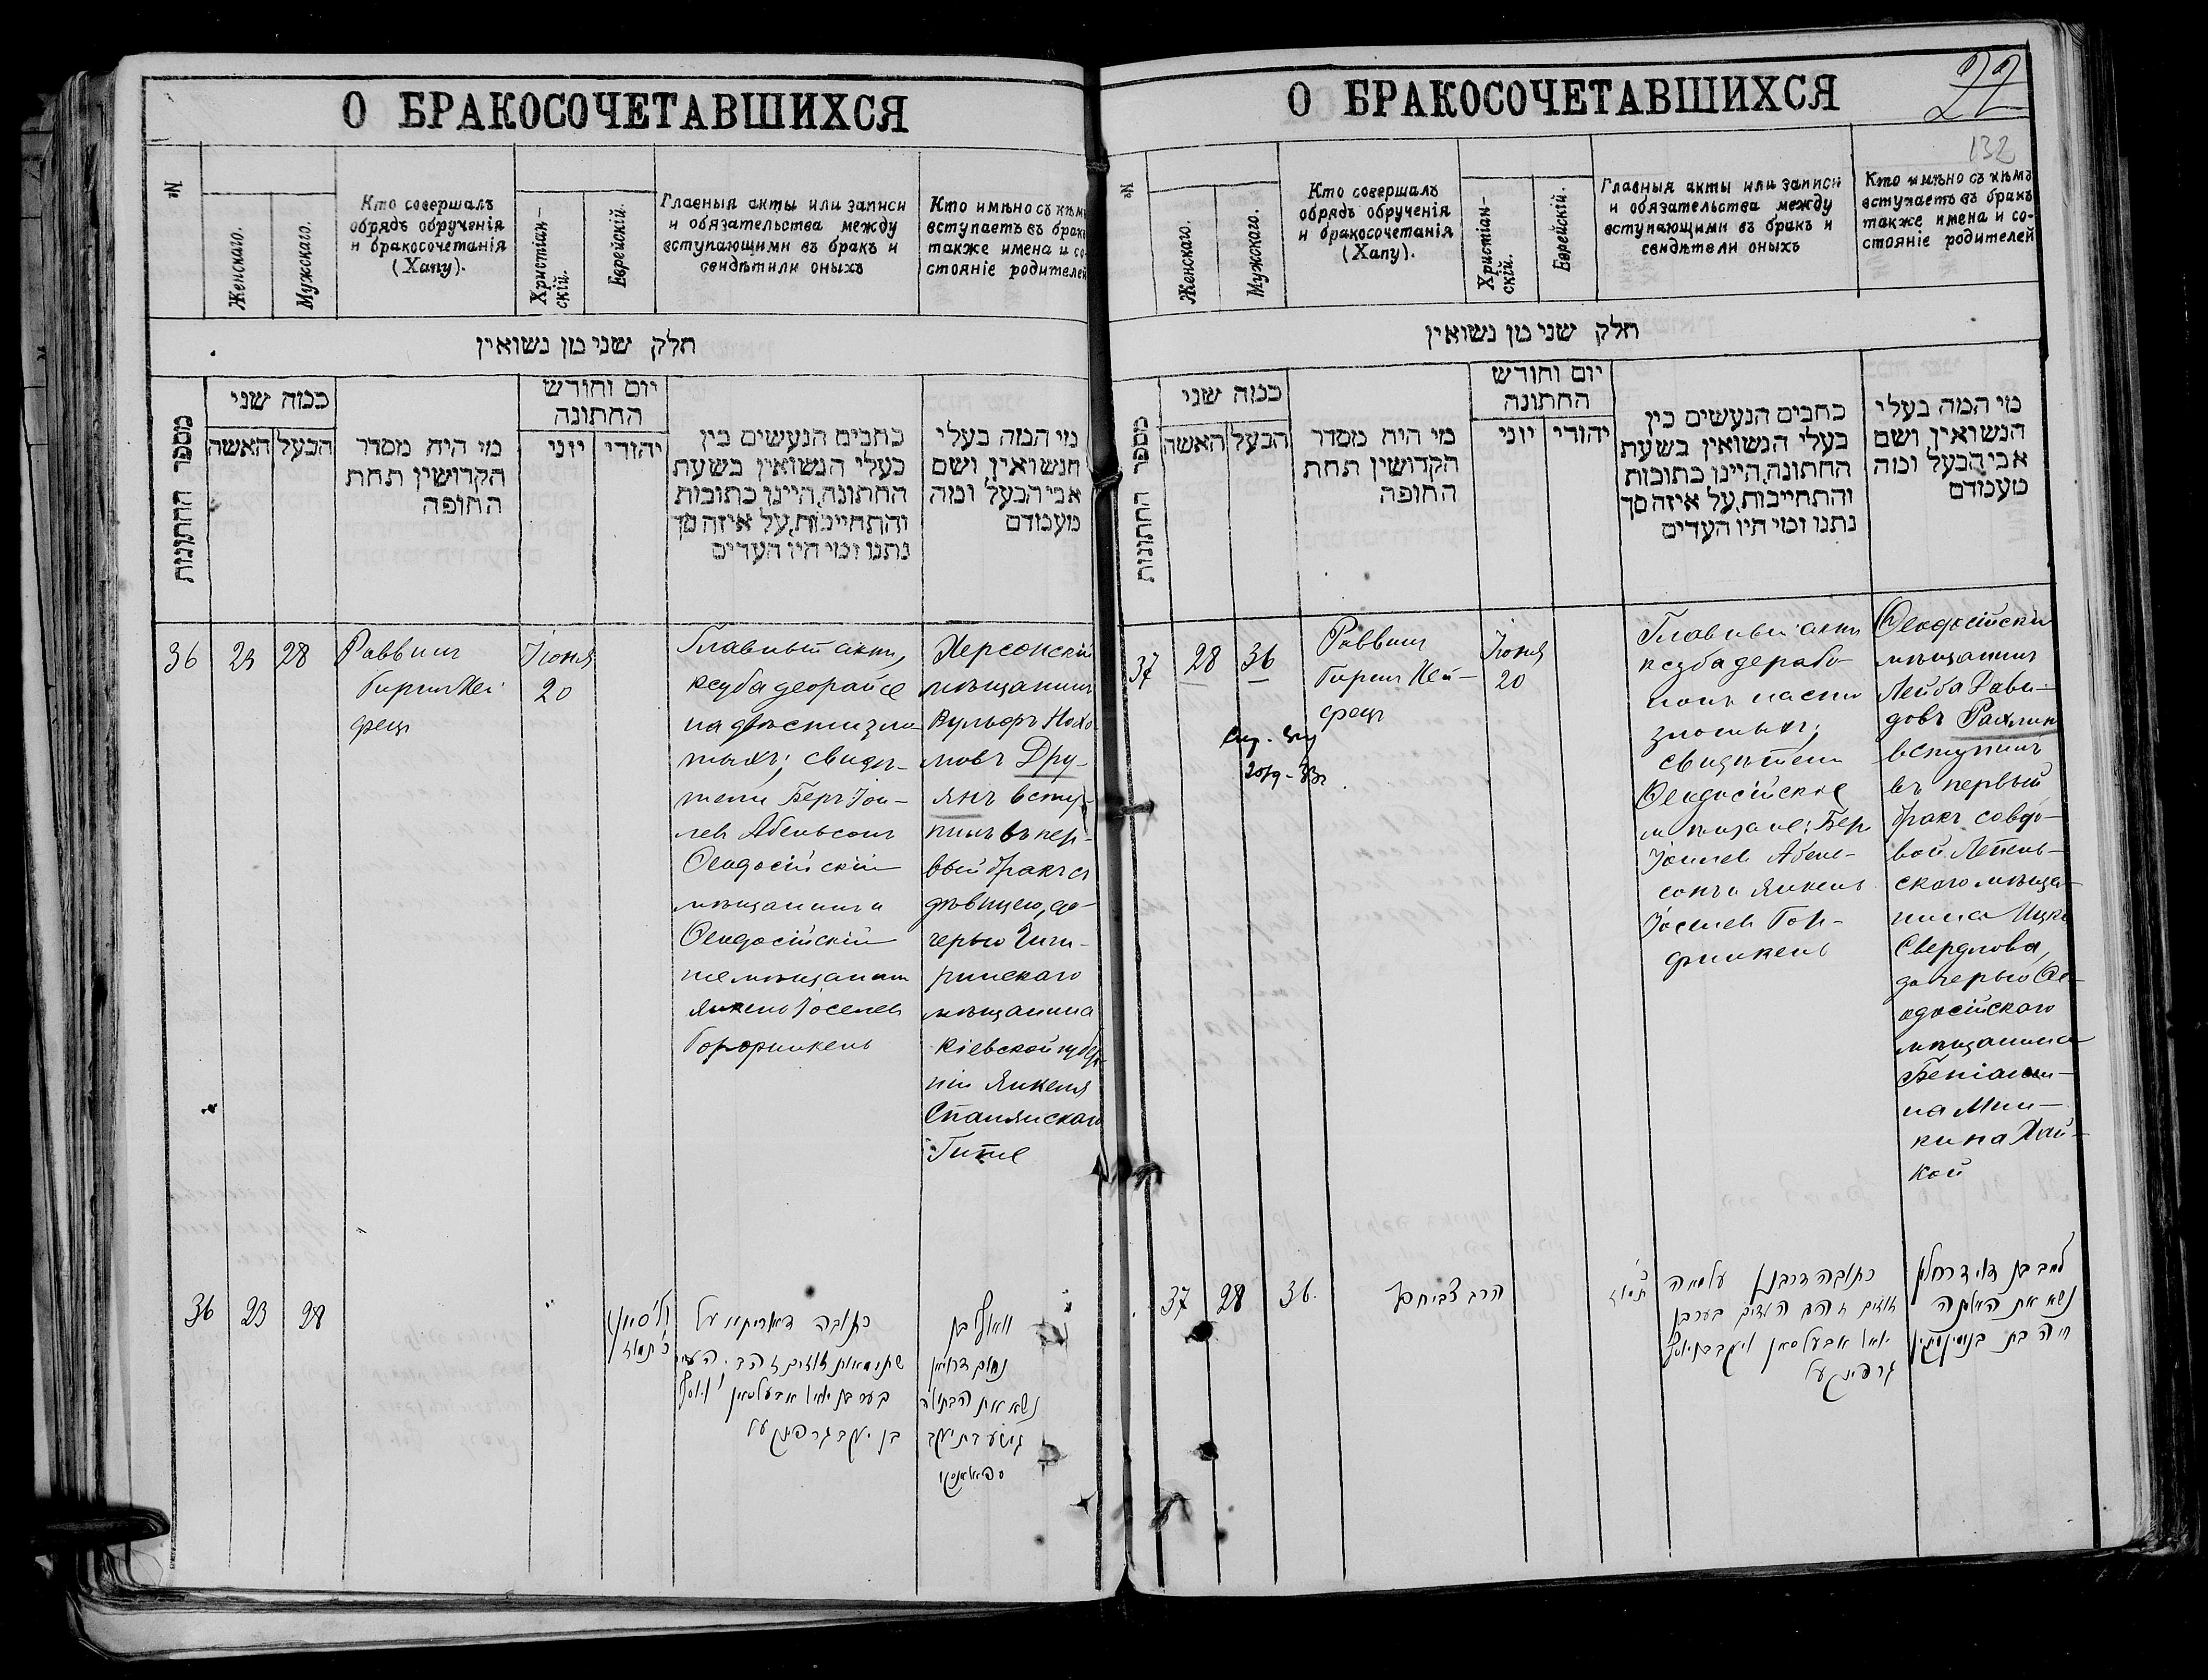 О БРАКОСОЧЕТАВШИХСЯ
№
Женскаго.
Мужскаго.
Кто совершалъ
обрядъ обрученія
и бракосочетанія
(Хапу).
Христіан-
скій.
Еврейскій.
Главныя акты или записи
и обязательства между
вступающими въ бракъ и
свидѣтили оныхъ
Кто имѣно съ кѣмъ
вступаетъ въ бракъ
также имена и со-
стояніе родителей
חלק שני מן נשואין
מספר החתונות
כמה שני
האשה
הבעל
מי היה מסדר
הקדושין תחת
החופה
יום וחודש
החתונה
יוני
יהודי
כתבים הנעשים בין
בעלי הנשואין בשעת
החתונה, היינו כתובות
והתחייבות, על איזה סך
נתנו ומי היו העדים
מי המה בעלי
הנשואין ושם
אבי הבעל ומה
מעמדם
36
23
28
Раввинъ
Гирш Кей
фец
Іюня
20
Главный актъ,
ксуба деорайсе
на двѣсти зло
тыхъ; свидѣ-
тели Беръ Іои-
лев Абельсонъ
Ѳеодосійскій
мѣщанинъ и
Ѳеодосійскій
же мѣщанин
Янкель Іоселев
Горфинкель
Херсонскій
мѣщанинъ
Вульфъ Нахи
мовъ Дру-
янъ всту-
пилъ въ пер-
вый бракъ съ
дѣвицею, до-
черью Чиги-
ринскаго
мѣщанина
Кіевской губер
ніи Янкеля
Сполянскаго
Гитле
36
23
28
כ' תמוז
כתובה דאורייתא על
שתי מאות זוזים זהב. העדים
בער בן יואל אבעלסאן
בן יעקב גרפינקעל
וואלף בן
נחום דרויאן
נשא את הבתולה
בת יעקב
О БРАКОСОЧЕТАВШИХСЯ
22
132
№
Женскаго.
Мужскаго.
Кто совершалъ
обрядъ обрученія
и бракосочетанія
(Хапу).
Христіан-
скій.
Еврейскій.
Главныя акты или записи
и обязательства между
вступающими въ бракъ и
свидѣтели оныхъ
Кто имѣно съ кѣмъ
вступаетъ въ бракъ
также имена и со-
стояніе родителей
חלק שני מן נשואין
מספר החתונות
כמה שני
האשה
הבעל
מי היה מסדר
הקדושין תחת
החופה
יום וחודש
החתונה
יוני
יהודי
כתבים הנעשים בין
בעלי הנשואין בשעת
החתונה, היינו כתובות
והתחייבות, על איזה סך
נתנו ומי היו העדים
מי המה בעלי
הנשואין ושם
אבי הבעל ומה
מעמדם
37
28
36
Раввинъ
Гирш Кей-
фец
Іюня
20
Главный актъ
ксуба дерабо-
нонъ на сто
злотыхъ;
свидѣтели
Ѳеодосійскіе
мѣщане: Бер
Іоилев Абель-
сонъ и Янкель
Іоселев Гор-
финкель
Ѳеодосійскій
мѣщанинъ
Лейба Дави-
довъ Рахлин
вступилъ
въ первый
бракъ съ вдо-
вой Лепель-
скаго мѣща-
нина Ицко
Свердлова,
дочерью Ѳе-
одосійскаго
мѣщанина
Беніами-
на Мин-
кина Хай-
кой
37
28
36.
הרב צבי חפץ
כ' תמוז
כתובה דרבנן על מאה
זוזים זהב העדים בער בן
יואל אבעלסאן ויעקב בן יוסף
גרפינקעל
לייב בן דוד רחלין
נשא את האלמנה
חיה בת בנימין מינקין